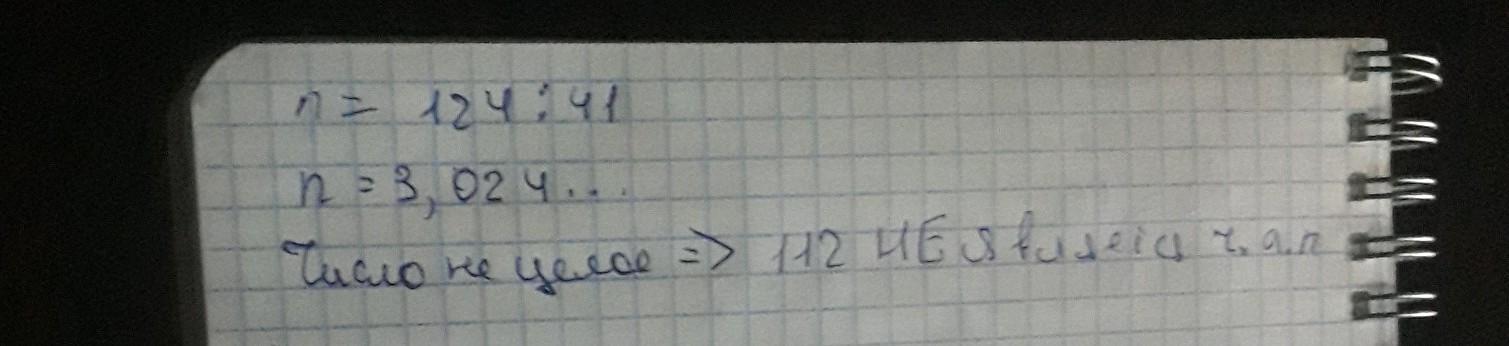 n = 124 : 41
n = 3,024...
Число не целое => 112 НЕ является ч.а.п